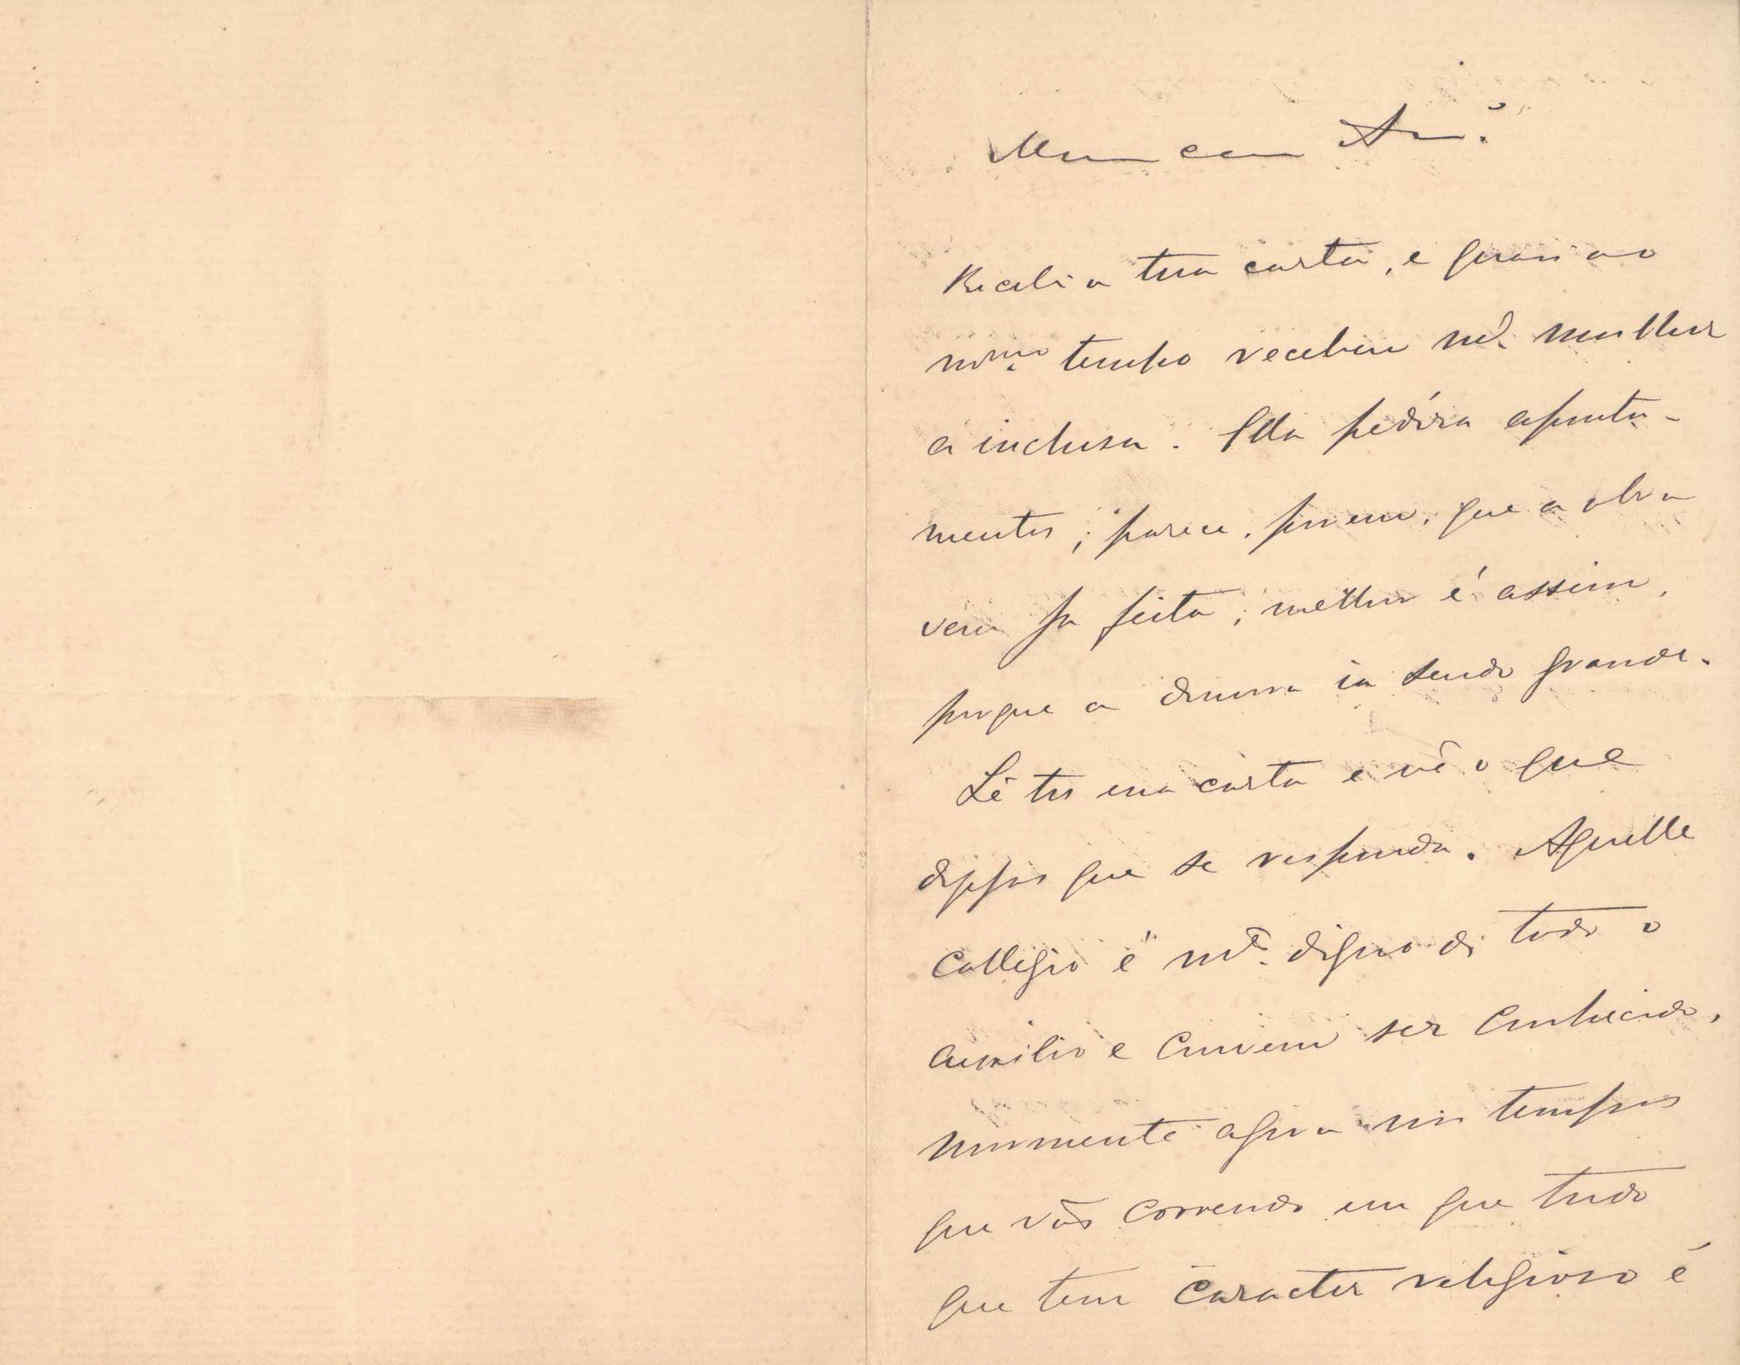 Meu caro Am.º
Recebi a tua carta, e quasi ao
m.mo tempo recebeu m.ª mulher
a inclusa. Ella pedira aponta-
mentos; parece, porem, que a obra
vem já feita; melhor é assim,
porque a demora ia sendo grande.
Lê tu essa carta e vê o que
depois que se responda. Aquelle
Collegio é m.to digno de todo o
auxilio e convem ser conhecido,
mormente agora nos tempos
que vão correndo em que tudo
que tem caracter religioso é